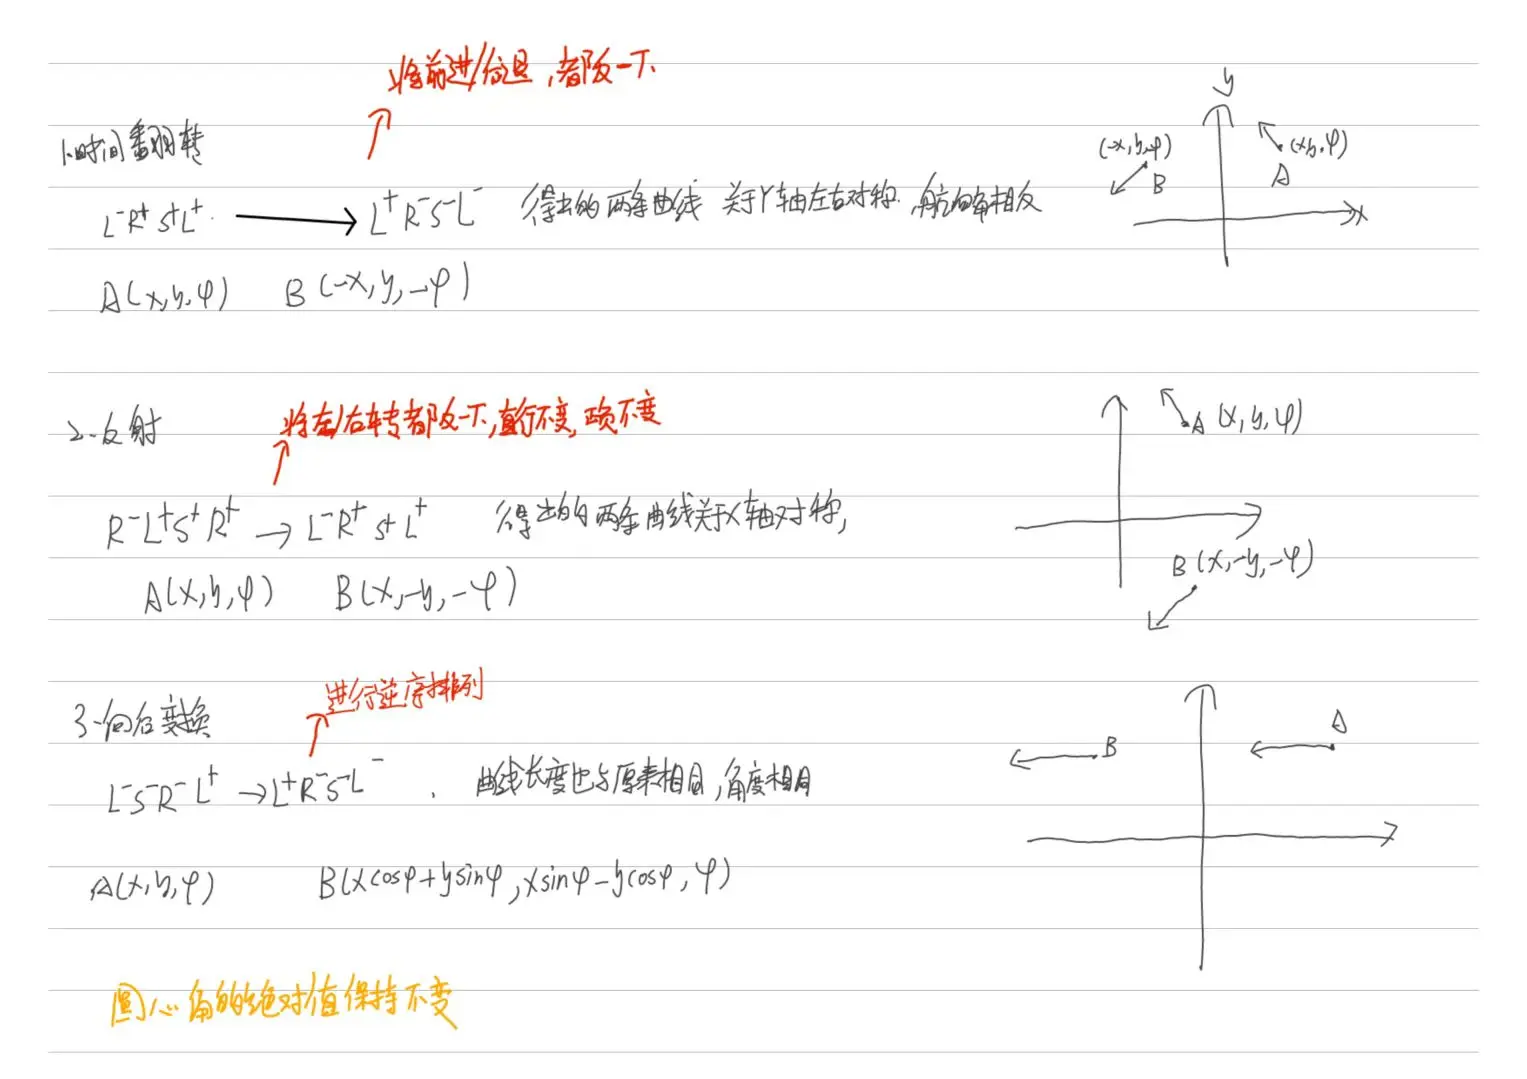 将前进/后退,都反一下
y
1.时间翻转
(-x,y,-φ)
(x,y,φ)
B
A
L⁻R⁺S⁺L⁺. → L⁺R⁻S⁻L⁻ 得出的两条曲线 关于Y轴左右对称. 航向角相反
x
A(x,y,φ) B(-x,y,-φ)
将左/右转都反一下,直行不变,
2.反射
A(x,y,φ)
R⁻L⁺S⁺R⁺ → L⁻R⁺S⁺L⁺ 得出的两条曲线关于X轴对称,
B(x,-y,-φ)
A(x,y,φ) B(x,-y,-φ)
进行逆序排列
3.向后变换
B
A
L⁻S⁻R⁻L⁺ → L⁺R⁻S⁻L⁻. 曲线长度也与原来相同,角度相同
A(x,y,φ) B(xcosφ+ysinφ,xsinφ-ycosφ,φ)
圆心角的绝对值保持不变